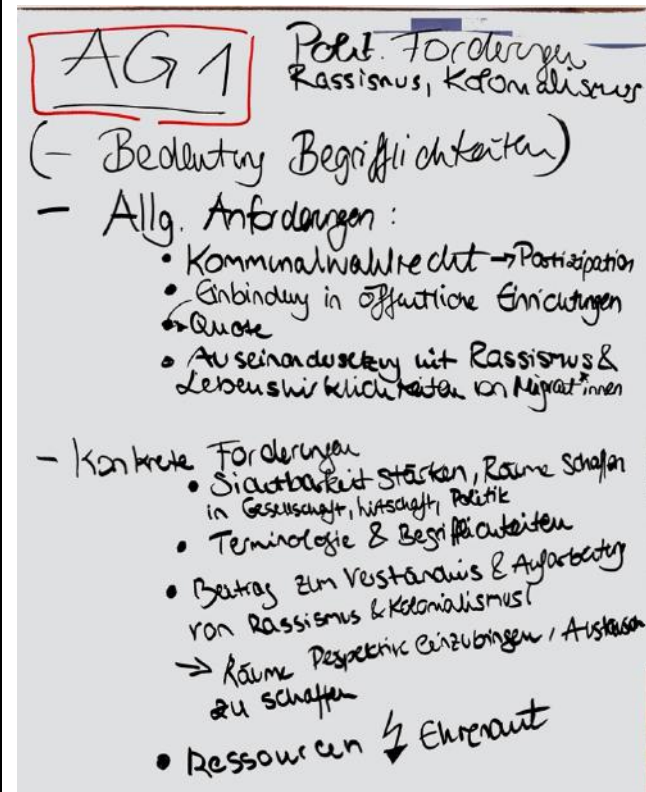 AG 1
Polit. Forderungen
Rassismus, Kolonialismus
(- Bedeutung Begrifflichkeiten)
- Allg. Anforderungen:
• Kommunalwahlrecht → Partizipation
• Einbindung in öffentliche Einrichtungen
• → Quote
• Auseinandersetzung mit Rassismus &
Lebenswirklichkeiten von Migrat*innen
- Konkrete Forderungen
• Sichtbarkeit stärken, Räume schaffen
in Gesellschaft, Wirtschaft, Politik
• Terminologie & Begrifflichkeiten
• Beitrag zum Verständnis & Aufarbeitung
von Rassismus & Kolonialismus!
→ Räume Pespektive einzubringen, Austausch
zu schaffen
• Ressourcen ↯ Ehrenamt